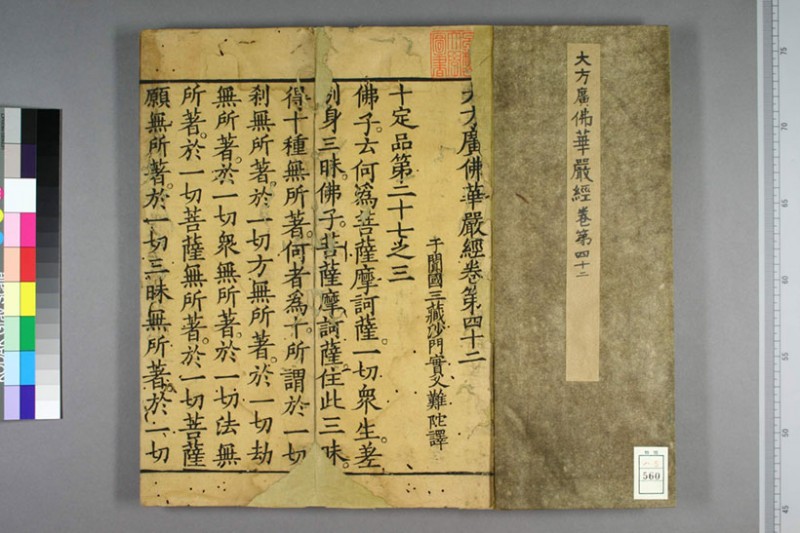 大方廣佛華嚴經卷第四十二
大方廣佛華嚴經卷第四十二
于闐國三藏沙門實叉難陀譯
十定品第二十七之三
佛子云何為菩薩摩訶薩一切眾生差
別身三昧佛子菩薩摩訶薩住此三昧
得十種無所著何者為十所謂於一切
剎無所著於一切方無所著於一切劫
無所著於一切眾無所著於一切法無
所著於一切菩薩無所著於一切菩薩
願無所著於一切三昧無所著於一切
560